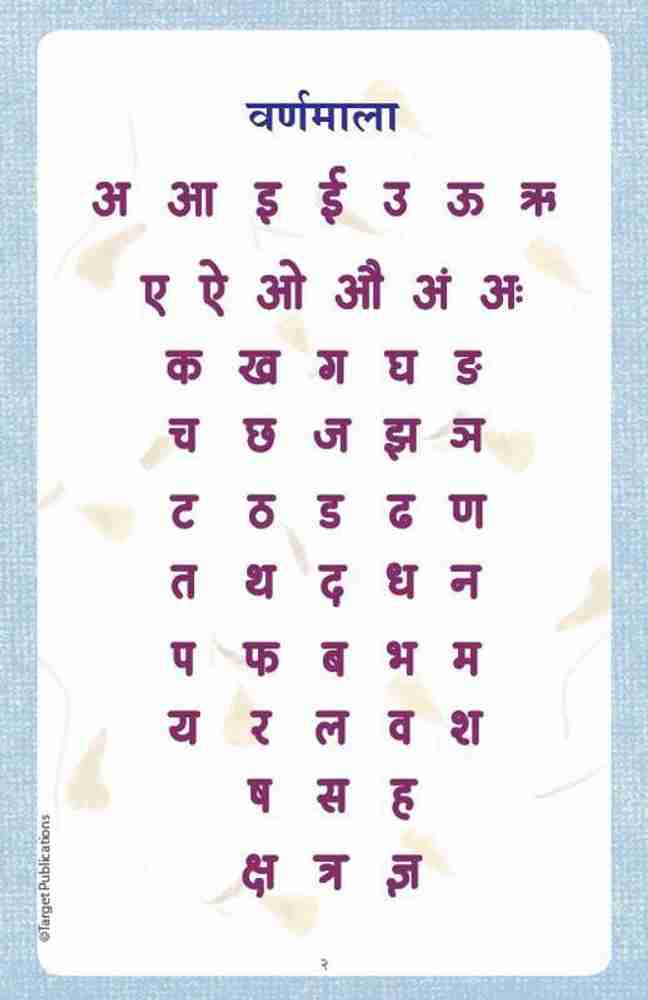 वर्णमाला
अ आ इ ई उ ऊ ऋ
ए ऐ ओ औ अं अः
क ख ग घ ङ
च छ ज झ ञ
ट ठ ड ढ ण
त थ द ध न
प फ ब भ म
य र ल व श
ष स ह
क्ष त्र ज्ञ
©Target Publications
२